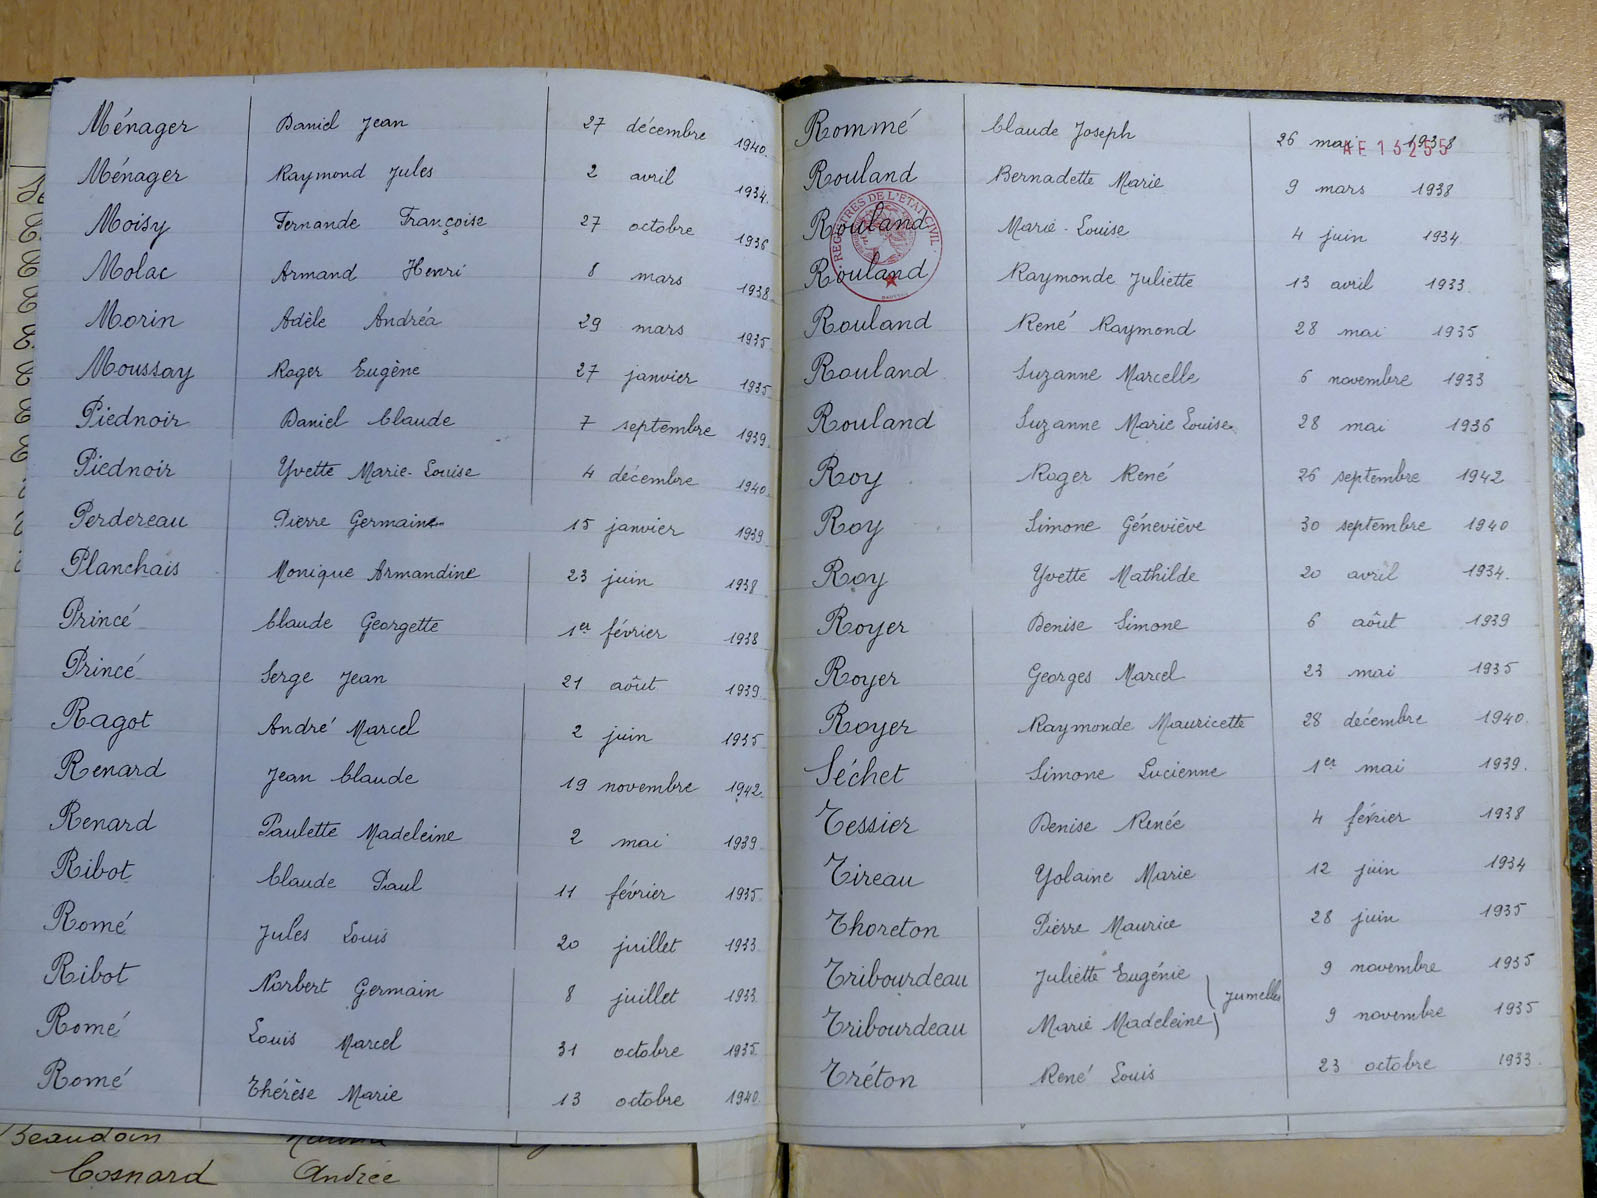 Ménager Daniel Jean 27 décembre 1940.
Ménager Raymond Jules 2 avril 1934.
Moisy Fernande Françoise 27 octobre 1936
Molac Armand Henri 8 mars 1938
Morin Adèle Andréa 29 mars 1935
Moussay Roger Eugène 27 janvier 1935
Piednoir Daniel Claude 7 septembre 1939
Piednoir Yvette Marie-Louise 4 décembre 1940
Perdereau Pierre Germain 15 janvier 1939
Planchais Monique Armandine 23 juin 1938
Princé Claude Georgette 1er février 1938
Princé Serge Jean 21 aôut 1939
Ragot André Marcel 2 juin 1935
Renard Jean Claude 19 novembre 1942
Renard Paulette Madeleine 2 mai 1939
Ribot Claude Paul 11 février 1935
Romé Jules Louis 20 juillet 1933
Ribot Norbert Germain 8 juillet 1933
Romé Louis Marcel 31 octobre 1935
Romé Thérèse Marie 13 octobre 1940
Beaudoin
Cosnard Andrée
Rommé Claude Joseph 26 mai 1938
AE 15255
Rouland Bernadette Marie 9 mars 1938
REGISTRES DE L'ETAT CIVIL
Rouland Marie-Louise 4 juin 1934
Rouland Raymonde Juliette 13 avril 1933
Rouland René Raymond 28 mai 1935
Rouland Suzanne Marcelle 6 novembre 1933
Rouland Suzanne Marie Louise 28 mai 1936
Roy Roger René 26 septembre 1942
Roy Simone Géneviève 30 septembre 1940
Roy Yvette Mathilde 20 avril 1934.
Royer Denise Simone 6 aôut 1939
Royer Georges Marcel 23 mai 1935
Royer Raymonde Mauricette 28 décembre 1940.
Séchet Simone Lucienne 1er mai 1939.
Tessier Denise Renée 4 février 1938
Tireau Yolaine Marie 12 juin 1934
Thoreton Pierre Maurice 28 juin 1935
Tribourdeau Juliette Eugénie 9 novembre 1935
jumelles
Tribourdeau Marie Madeleine 9 novembre 1935
Tréton René Louis 23 octobre 1933.